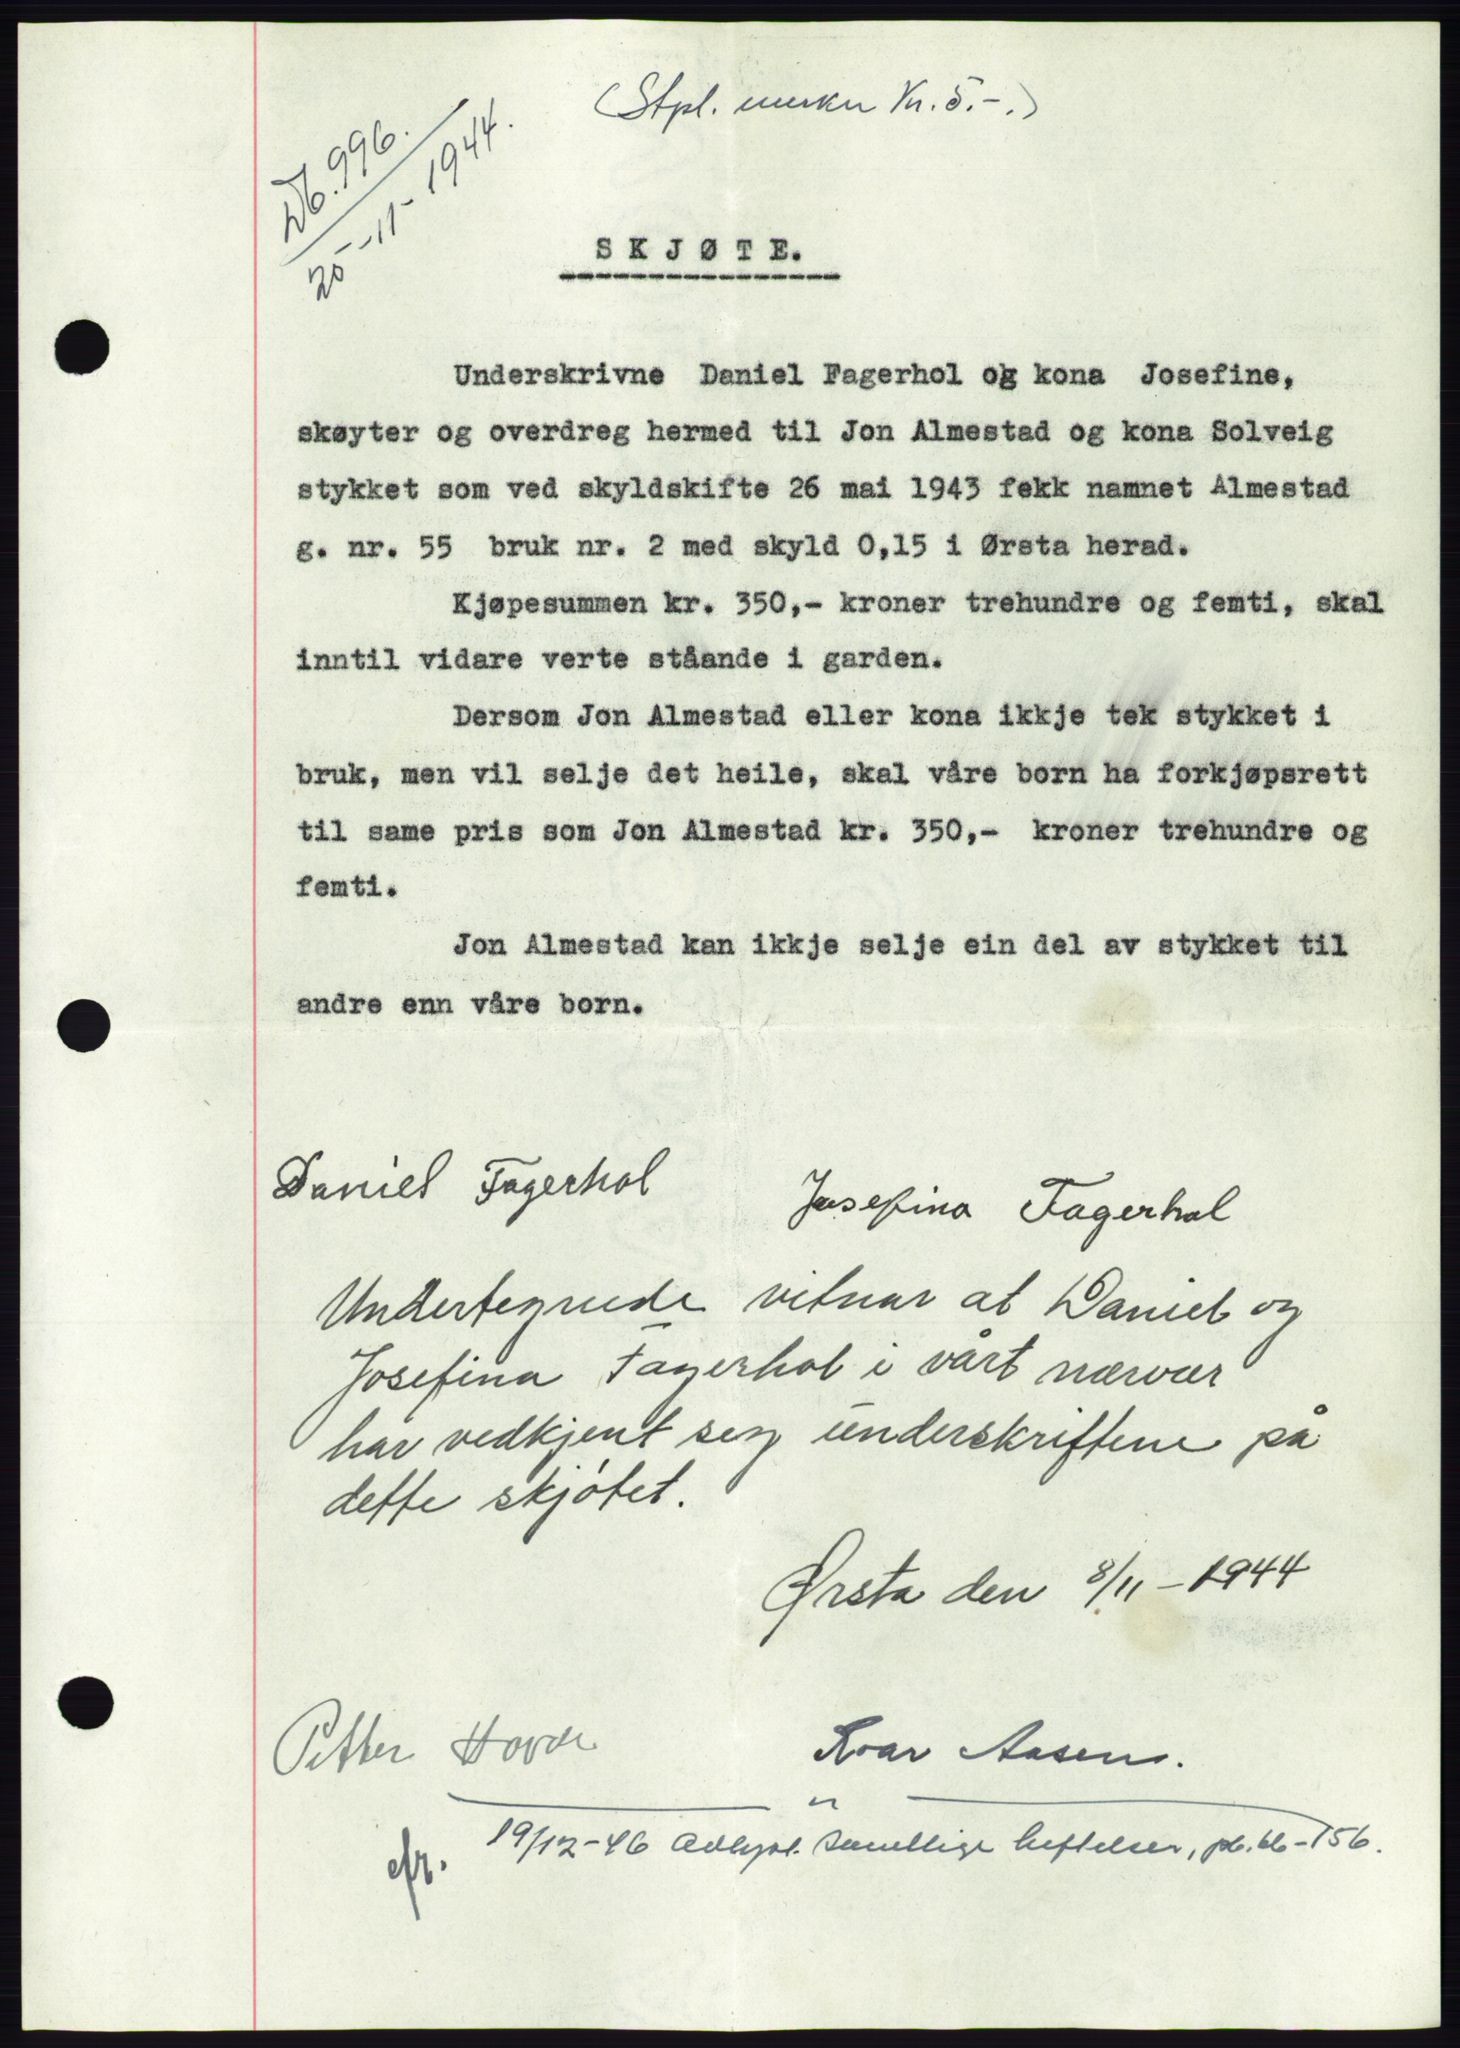 (Stpl. merker Kr. 5.-.)
Db. 996.
20-11-1944.
SKJØTE.
Underskrivne Daniel Fagerhol og kona Josefine,
skøyter og overdreg hermed til Jon Almestad og kona Solveig
stykket som ved skyldskifte 26 mai 1943 fekk namnet Almestad
g. nr. 55 bruk nr. 2 med skyld 0,15 i Ørsta herad.
Kjøpesummen kr. 350,- kroner trehundre og femti, skal
inntil vidare verte ståande i garden.
Dersom Jon Almestad eller kona ikkje tek stykket i
bruk, men vil selje det heile, skal våre born ha forkjøpsrett
til same pris som Jon Almestad kr. 350,- kroner trehundre og
femti.
Jon Almestad kan ikkje selje ein del av stykket til
andre enn våre born.
Daniel Fagerhol Josefina Fagerhol
Undertegnede vitnar at Daniel og
Josefina Fagerhol i vårt nærvær
har vedkjent seg underskriftene på
dette skjøtet.
Ørsta den 8/11-1944
Petter Hovde Ivar Aasen.
19/12-46 samtlige heftelser, pb. bb-156.
cfr.